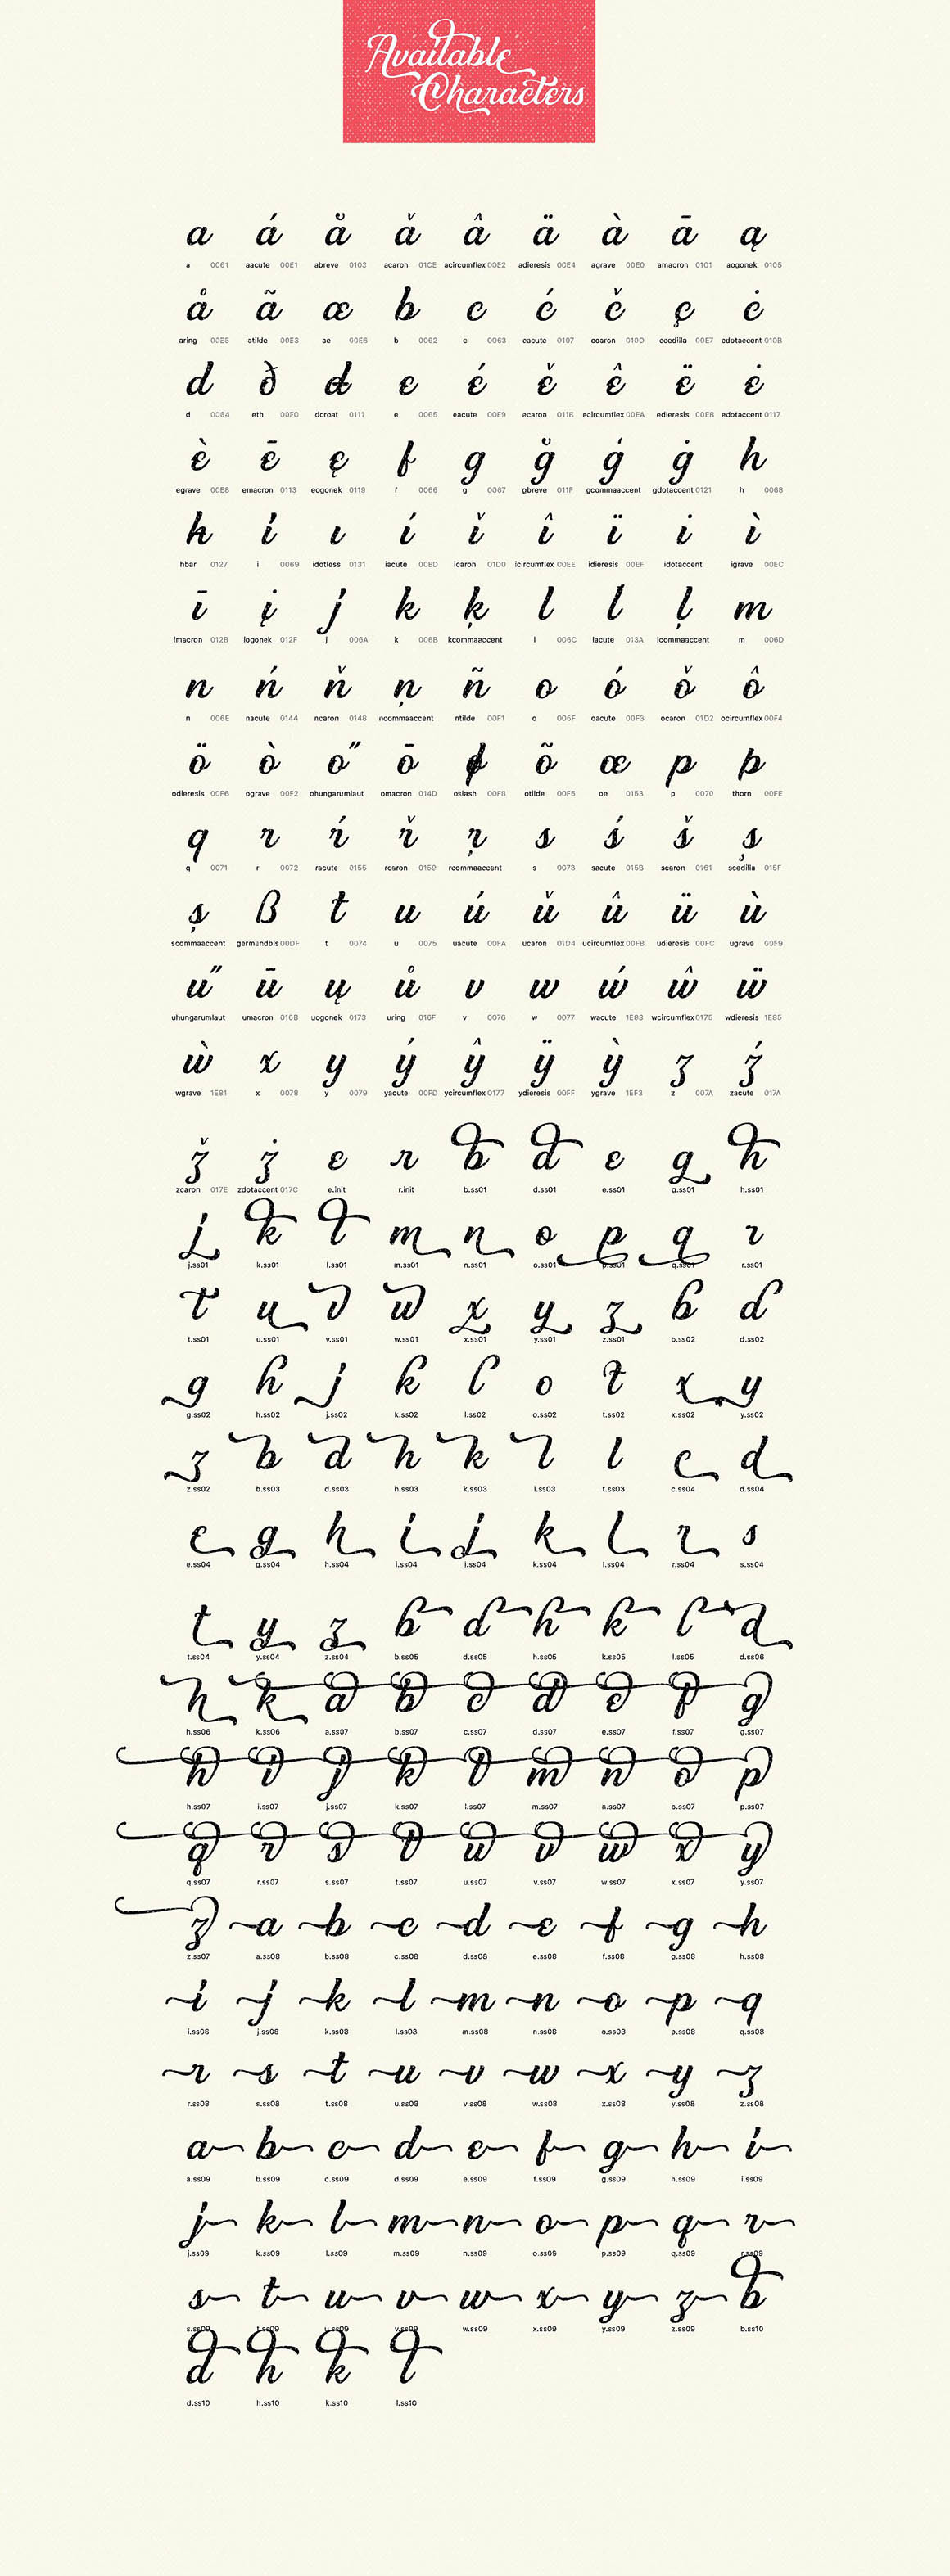 Available
Characters
a á ă ǎ â ä à ā ą
a 0061 aacute 00E1 abreve 0103 acaron 01CE acircumflex 00E2 adieresis 00E4 agrave 00E0 amacron 0101 aogonek 0105
å ã æ b c ć č ç ċ
aring 00E5 atilde 00E3 ae 00E6 b 0062 c 0063 cacute 0107 ccaron 010D ccedilla 00E7 cdotaccent 010B
d ð đ e é ě ê ë ė
d 0064 eth 00F0 dcroat 0111 e 0065 eacute 00E9 ecaron 011B ecircumflex 00EA edieresis 00EB edotaccent 0117
è ē ę f g ğ ģ ġ h
egrave 00E8 emacron 0113 eogonek 0119 f 0066 g 0067 gbreve 011F gcommaaccent gdotaccent 0121 h 0068
ħ i ı í ǐ î ï i ì
hbar 0127 i 0069 idotless 0131 iacute 00ED icaron 01D0 icircumflex 00EE idieresis 00EF idotaccent igrave 00EC
ī į j k ķ l ĺ ļ m
imacron 012B iogonek 012F j 006A k 006B kcommaaccent l 006C lacute 013A lcommaaccent m 006D
n ń ň ņ ñ o ó ǒ ô
n 006E nacute 0144 ncaron 0148 ncommaaccent ntilde 00F1 o 006F oacute 00F3 ocaron 01D2 ocircumflex 00F4
ö ò ő ō ø õ œ p þ
odieresis 00F6 ograve 00F2 ohungarumlaut omacron 014D oslash 00F8 otilde 00F5 oe 0153 p 0070 thorn 00FE
q r ŕ ř ŗ s ś š ş
q 0071 r 0072 racute 0155 rcaron 0159 rcommaaccent s 0073 sacute 015B scaron 0161 scedilla 015F
ș ß t u ú ǔ û ü ù
scommaaccent germandbls 00DF t 0074 u 0075 uacute 00FA ucaron 01D4 ucircumflex 00FB udieresis 00FC ugrave 00F9
ű ū ų ů v w ẃ ŵ ẅ
uhungarumlaut umacron 016B uogonek 0173 uring 016F v 0076 w 0077 wacute 1E83 wcircumflex 0175 wdieresis 1E85
ẁ x y ý ŷ ÿ ỳ z ź
wgrave 1E81 x 0078 y 0079 yacute 00FD ycircumflex 0177 ydieresis 00FF ygrave 1EF3 z 007A zacute 017A
ž ż e r b d e g h
zcaron 017E zdotaccent 017C e.init r.init b.ss01 d.ss01 e.ss01 g.ss01 h.ss01
j k l m n o p q r
j.ss01 k.ss01 l.ss01 m.ss01 n.ss01 o.ss01 p.ss01 q.ss01 r.ss01
t u v w x y z b d
t.ss01 u.ss01 v.ss01 w.ss01 x.ss01 y.ss01 z.ss01 b.ss02 d.ss02
g h j k l o t x y
g.ss02 h.ss02 j.ss02 k.ss02 l.ss02 o.ss02 t.ss02 x.ss02 y.ss02
z b d h k l l c d
z.ss02 b.ss03 d.ss03 h.ss03 k.ss03 l.ss03 t.ss03 c.ss04 d.ss04
e g h i j k l r s
e.ss04 g.ss04 h.ss04 i.ss04 j.ss04 k.ss04 l.ss04 r.ss04 s.ss04
t y z b d h k l d
t.ss04 y.ss04 z.ss04 b.ss05 d.ss05 h.ss05 k.ss05 l.ss05 d.ss06
h k a b c d e f g
h.ss06 k.ss06 a.ss07 b.ss07 c.ss07 d.ss07 e.ss07 f.ss07 g.ss07
h i j k l m n o p
h.ss07 i.ss07 j.ss07 k.ss07 l.ss07 m.ss07 n.ss07 o.ss07 p.ss07
q r s t u v w x y
q.ss07 r.ss07 s.ss07 t.ss07 u.ss07 v.ss07 w.ss07 x.ss07 y.ss07
z a b c d e f g h
z.ss07 a.ss08 b.ss08 c.ss08 d.ss08 e.ss08 f.ss08 g.ss08 h.ss08
i j k l m n o p q
i.ss08 j.ss08 k.ss08 l.ss08 m.ss08 n.ss08 o.ss08 p.ss08 q.ss08
r s t u v w x y z
r.ss08 s.ss08 t.ss08 u.ss08 v.ss08 w.ss08 x.ss08 y.ss08 z.ss08
a b c d e f g h i
a.ss09 b.ss09 c.ss09 d.ss09 e.ss09 f.ss09 g.ss09 h.ss09 i.ss09
j k l m n o p q r
j.ss09 k.ss09 l.ss09 m.ss09 n.ss09 o.ss09 p.ss09 q.ss09 r.ss09
s t u v w x y z b
s.ss09 t.ss09 u.ss09 v.ss09 w.ss09 x.ss09 y.ss09 z.ss09 b.ss10
d h k l
d.ss10 h.ss10 k.ss10 l.ss10